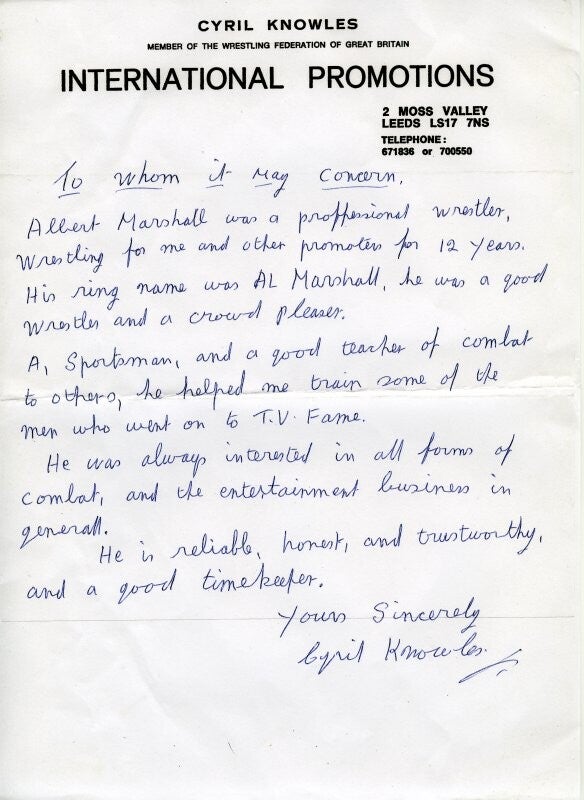 CYRIL KNOWLES
MEMBER OF THE WRESTLING FEDERATION OF GREAT BRITAIN
INTERNATIONAL PROMOTIONS
2 MOSS VALLEY
LEEDS LS17 7NS
TELEPHONE:
671836 or 700550
To whom it may concern,
Albert Marshall was a proffessional wrestler,
Wrestling for me and other promoters for 12 years.
His ring name was AL Marshall, he was a good
wrestler and a crowd pleaser.
A, Sportsman, and a good teacher of combat
to others, he helped me train some of the
men who went on to T.V. Fame.
He was always interested in all forms of
combat, and the entertainment business in
generall.
He is reliable, honest, and trustworthy,
and a good timekeeper.
Yours Sincerely
Cyril Knowles.